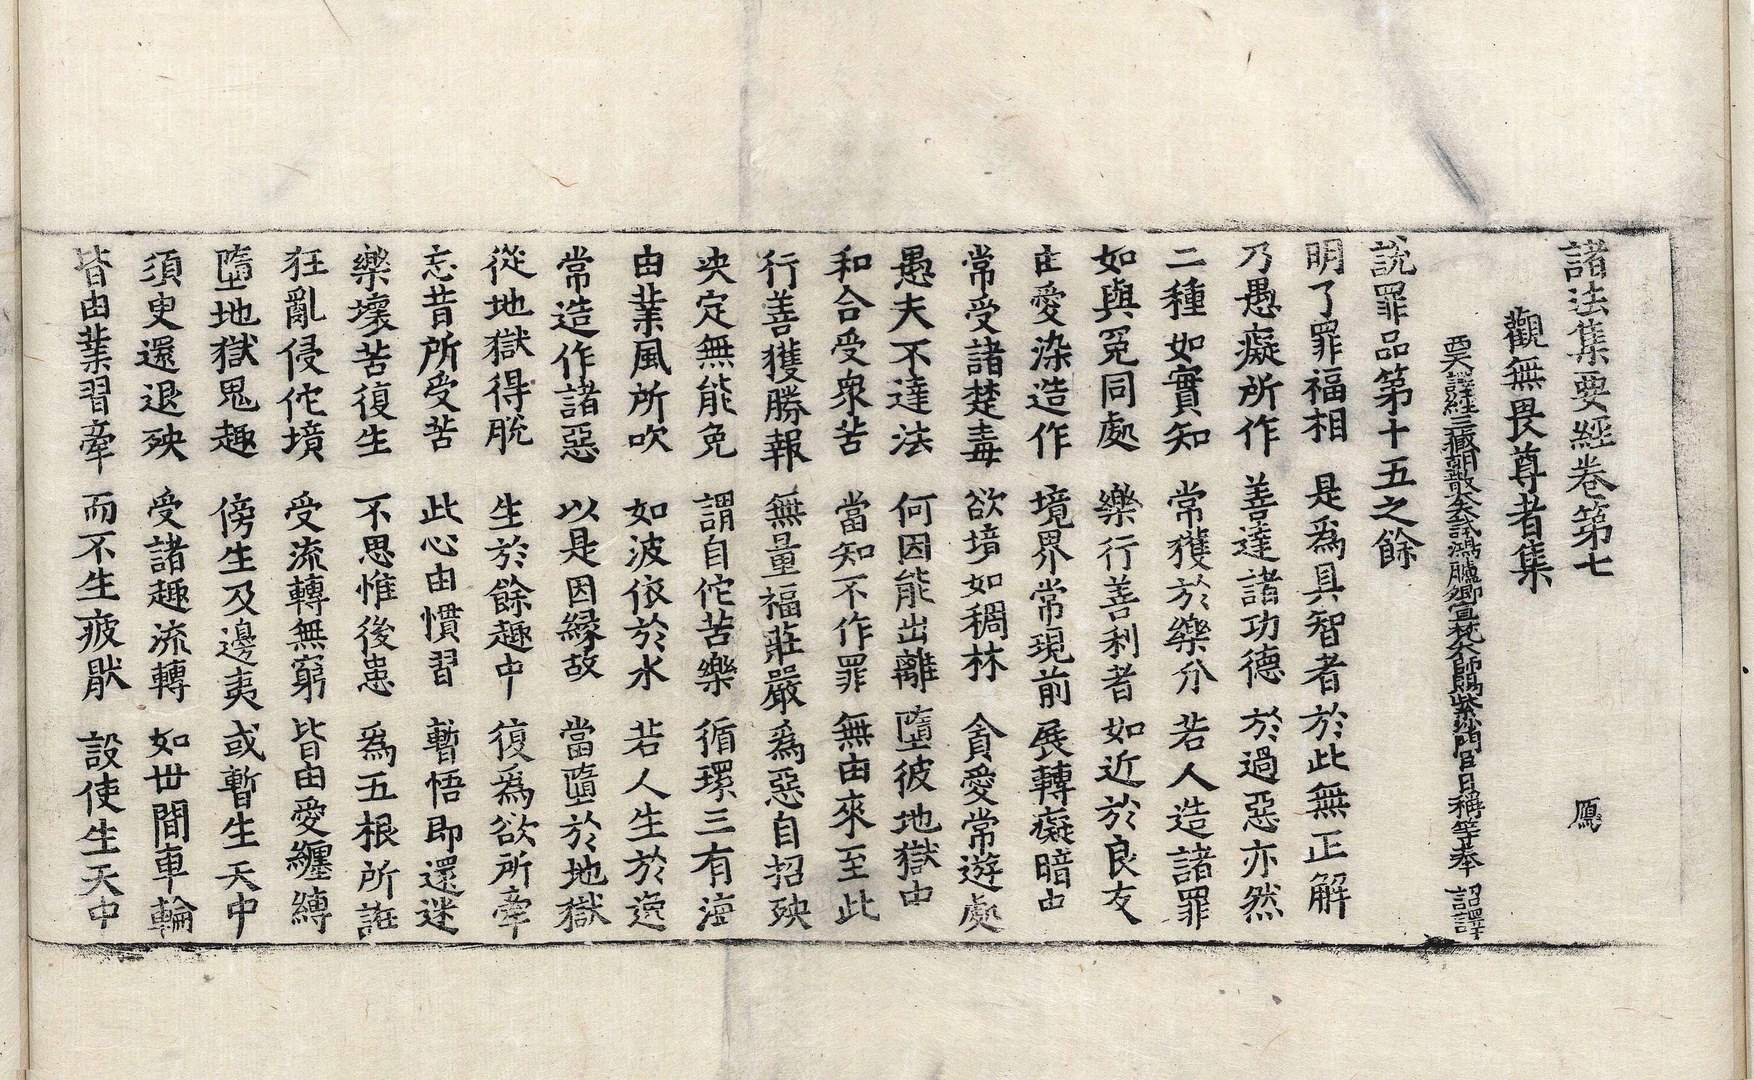 諸法集要經卷第七　鴈
觀無畏尊者集
西天譯經三藏朝散大夫試鴻臚卿宣梵大師賜紫沙門臣日稱等奉 詔譯
說罪品第十五之餘
明了罪福相 是爲具智者 於此無正解
乃愚癡所作 善達諸功德 於過惡亦然
二種如實知 常獲於樂分 若人造諸罪
如與冤同處 樂行善利者 如近於良友
由愛染造作 境界常現前 展轉癡暗由
常受諸楚毒 欲境如稠林 貪愛常遊處
愚夫不達法 何因能出離 墮彼地獄中
和合受衆苦 當知不作罪 無由來至此
行善獲勝報 無量福莊嚴 爲惡自招殃
決定無能免 謂自佗苦樂 循環三有海
由業風所吹 如波依於水 若人生於逸
常造作諸惡 以是因緣故 當墮於地獄
從地獄得脫 生於餘趣中 復爲欲所牽
忘昔所受苦 此心由慣習 暫悟即還迷
樂壞苦復生 不思惟後患 爲五根所誑
狂亂侵佗境 受流轉無窮 皆由愛纏縛
墮地獄鬼趣 傍生及邊夷 或暫生天中
須臾還退殃 受諸趣流轉 如世間車輪
皆由業習牽 而不生疲猒 設使生天中